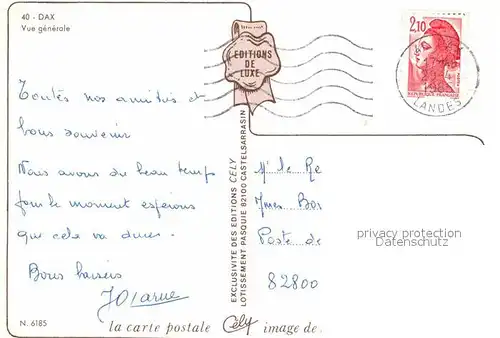 40 - DAX
Vue générale
EDITIONS
DE
LUXE
2,10
RÉPUBLIQUE FRANÇAISE
LANDES
Toutes nos amitiés et
bons souvenir
Nous avons du beau temps
pour le moment espérons
que cela va durer.
Bons baisers
EXCLUSIVITE DES EDITIONS CELY
LOTISSEMENT PASQUIE 82100 CASTELSARRASIN
Mr le Re
Yves Bor
Poste de
82800
privacy protection
Datenschutz
N. 6185
la carte postale Cély image de